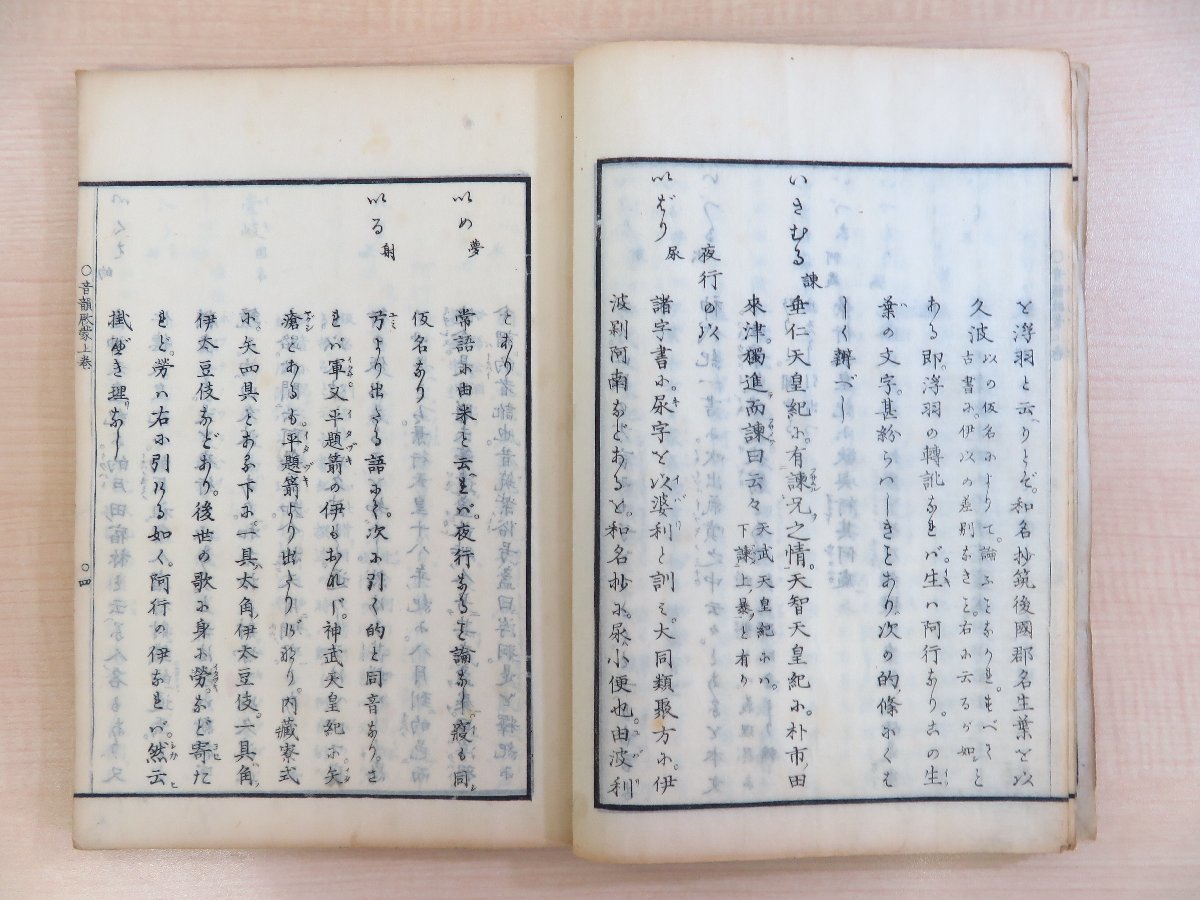 と浮羽と云へりとぞ。和名抄筑後國郡名生葉を以
久波以の仮名によりて。論ふことなかれ。すべてこと
古書に。伊以の差別なきこと。右に云るが如し
ある。即浮羽の轉訛なれバ。生ハ阿行なり。この生
葉の文字。甚紛らハしきことあり。次の的ノ條にくは
しく辨ずべし
いさむる 諫 垂仁天皇紀に。有諫兄之情。天智天皇紀に。朴市田
來津。獨進而諫曰云々 天武天皇紀にハ。下諫上暴と有り
夜行の以
以ばり 尿 諸字書に。尿字を以婆利と訓ミ。大同類聚方に。伊
波剃阿南などあると。和名抄に。尿ハ小便也。由波利
とあり
以め 夢 常語に由米と云ヘれバ。夜行なること論なし。寝も同
仮名なり
以る 射 弓より出たる語にて。次に引く的と同音なり。さ
れバ軍又平題箭の伊もおなじ。神武天皇紀に。矢
滄とあるも。平題箭より出たりげなり。内藏寮式
に。矢四具とある下に。一具太角。伊太豆伎。一具角
伊太豆伎などあり。後世の歌に身に勞など寄た
れど。勞ハ右に引ける如く。阿行の伊なれバ。然云
掛べき理なし
〇音韻啟蒙上巻 〇四